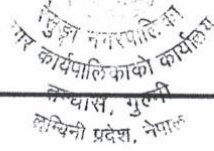 रेसुङ्गा नगरपालिका
नगर कार्यपालिकाको कार्यालय
तम्घास, गुल्मी
लुम्बिनी प्रदेश, नेपाल